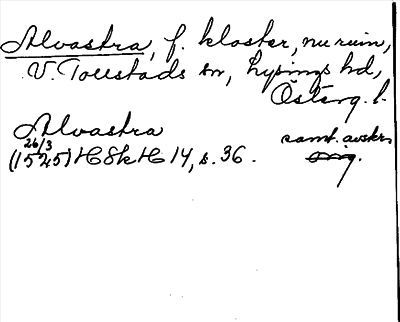 Alvastra, f. kloster, nu ruin,
V. Tollstads sn, Lysings hd,
Österg. l.
Alvastra samt. avskr.
26/3
(1525) HSH 14, s. 36. orig.